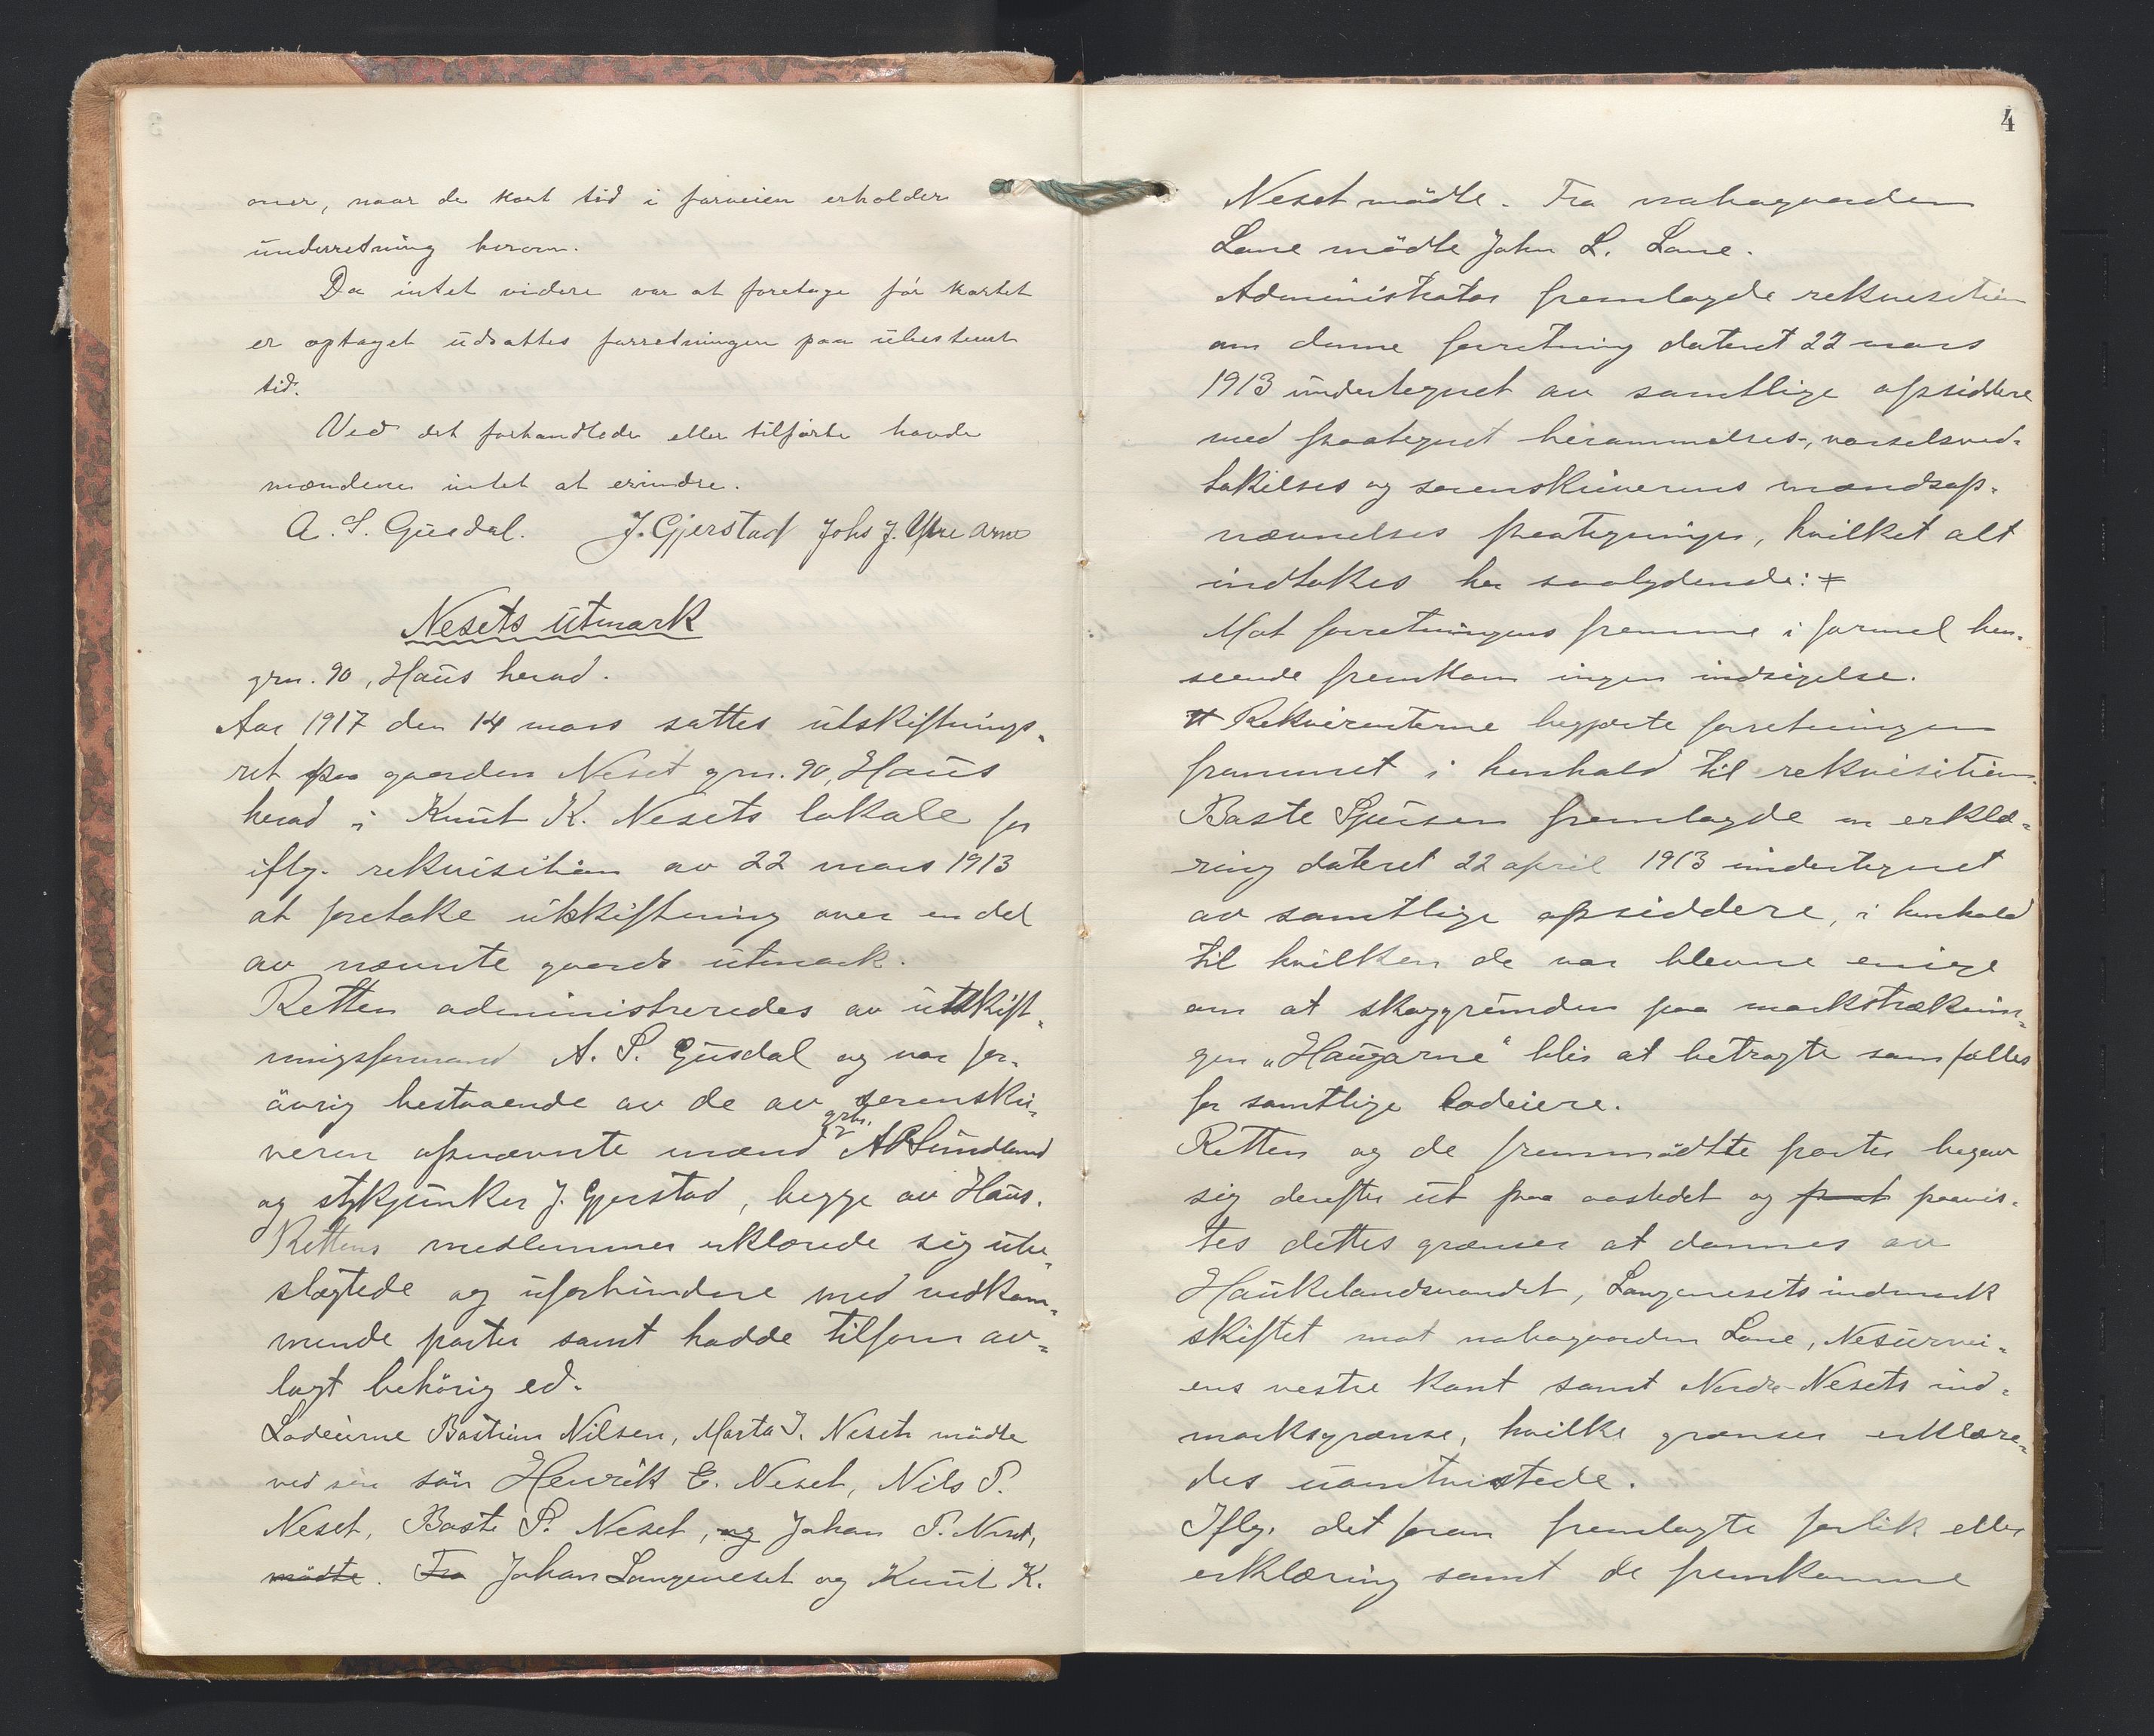 over, naar de kort tid i forveien erholder
underretning herom.
Da intet videre var at foretage før kartet
er optaget udsattes forretningen paa ubestemt
tid.
Ved det forhandlede eller tilførte havde
mændene intet at erindre.
A. S. Gusdal. J. Gjerstad Johs J. Ytre Arne
Nesets utmark
grn. 90, Haus herad.
Aar 1917 den 14 mars sattes utskiftnings-
ret paa gaarden Neset grn. 90, Haus
herad i Knut K. Nesets lokale for
iflg. rekvisition av 22 mars 1913
at foretake utskiftning over en del
av nævnte gaards utmark.
Retten administreredes av utskift-
ningsformand A. S. Gusdal og var for-
øvrig bestaaende av de av sorenskri-
veren opnævnte mænd grbr. A Sundland
og stykjunker J. Gjerstad, begge av Haus.
Rettens medlemmer erklærede sig ube-
slægtede og uforhindre med vedkom-
mende parter samt hadde tilforn av-
lagt behørig ed.
Lodeierne Bastian Nilsen, Marta I. Neset mødte
ved sin søn Henrik E. Neset, Nils P.
Neset, Baste P. Neset, og Johan P. Neset,
mødte. Fra Johan Langeneset og Knut K.
4
Neset mødte. Fra nabogaarden
Lone mødte John L. Lone.
Administrator fremlagde rekvisition
om denne forretning dateret 22 mars
1913 undertegnet av samtlige opsiddere
med paategnet berammelses-, varselsved-
takelses og sorenskriverens mandsop-
nævnelses paategninger, hvilket alt
indtakes her saalydende: ≠
Mot forretningens fremme i formel hen-
seende fremkom ingen indsigelse.
# Rekvirenterne begjærte forretningen
fremmet i henhold til rekvisitionen.
Baste Sjursen fremlagde en erklæ-
ring dateret 22 april 1913 undertegnet
av samtlige opsiddere, i henhold
til hvilken de var blevne enige
om at skoggrunden paa markstræknin-
gen "Haugarne" blir at betragte som fælles
for samtlige lodeiere.
Retten og de fremmødte parter begav
sig derefter ut paa aastedet og paat paavis-
tes dettes grænser at dannes av
Haukelandsvandet, Langenesets indmark
skiftet mot nabogaarden Lone, Nesurvei-
ens vestre kant samt Nordre-Nesets ind-
marksgrænse, hvilke grænser erklære-
des uomtvistede.
Iflg. det foran fremlagte forlik eller
erklæring samt de fremkomne